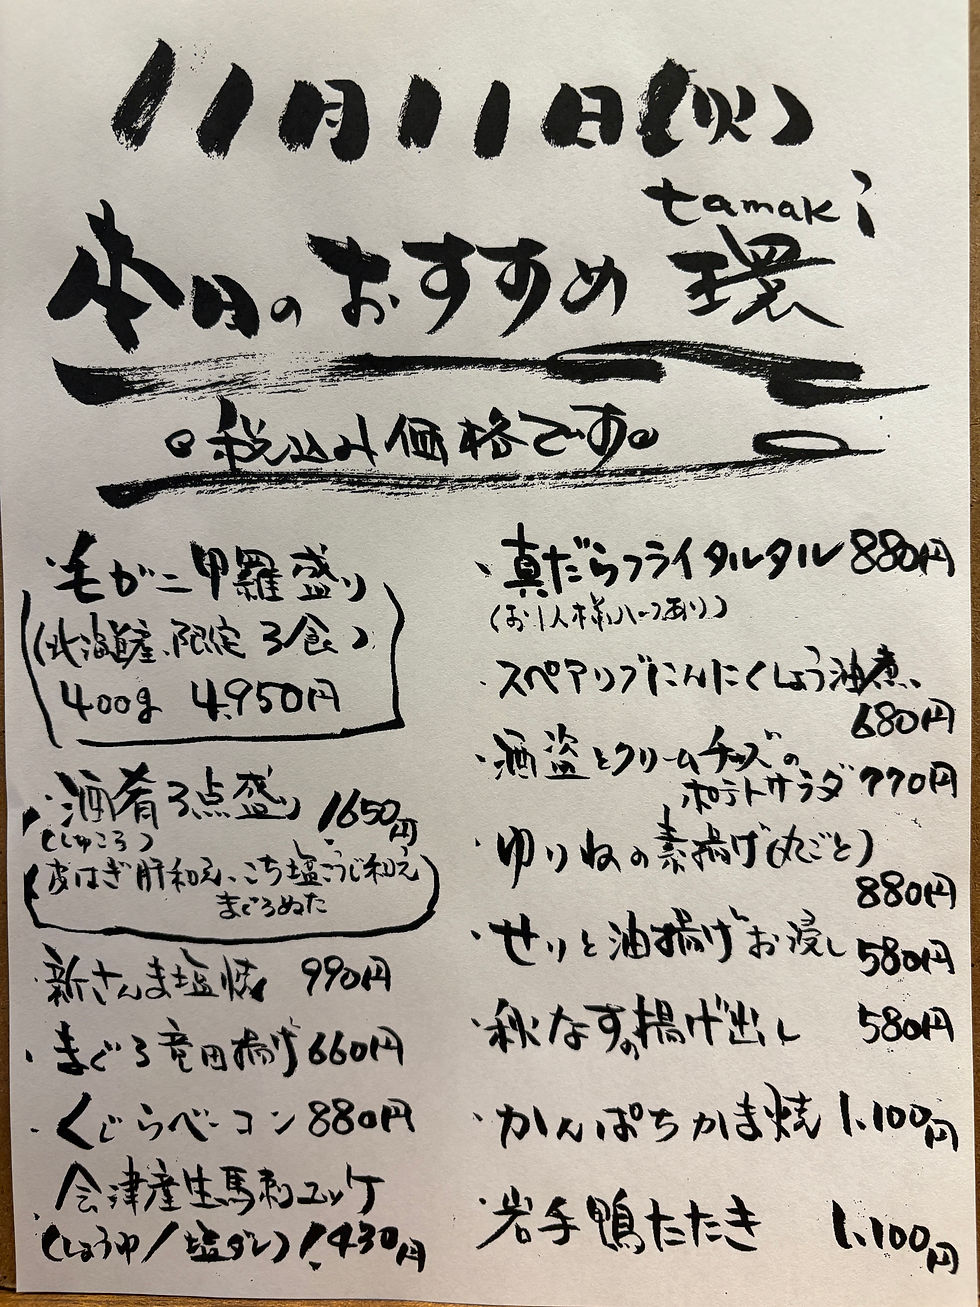 11月11日(火)
tamaki
本日のおすすめ 環
。税込み価格です。
・毛がに甲羅盛り
(北海道産、限定3食)
400g 4,950円
・酒肴3点盛り 1,650円
(しゅこう)
(皮はぎ肝和え、こち塩こうじ和え
まぐろぬた
・新さんま塩焼 990円
・まぐろ竜田揚げ 660円
・くじらベーコン 880円
・会津産生馬刺ユッケ
(しょうゆ/塩ダレ) 1,430円
・真だらフライタルタル 880円
(お1人様ハーフあり)
・スペアリブにんにくしょう油煮
680円
・酒盗とクリームチーズの
ポテトサラダ 770円
・ゆりねの素揚げ(丸ごと)
880円
・せりと油揚げお浸し 580円
・秋なすの揚げ出し 580円
・かんぱちかま焼 1,100円
・岩手鴨たたき 1,100円